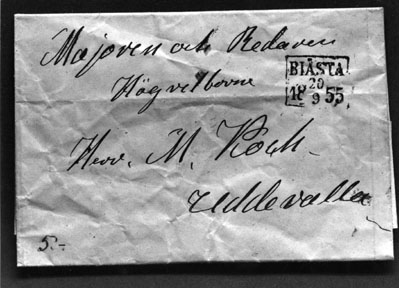 Majoren och Redaren
Högvelborne
Herr. M. Koch.
Uddevalla
BIÄSTA
20
18 55
9
5.-